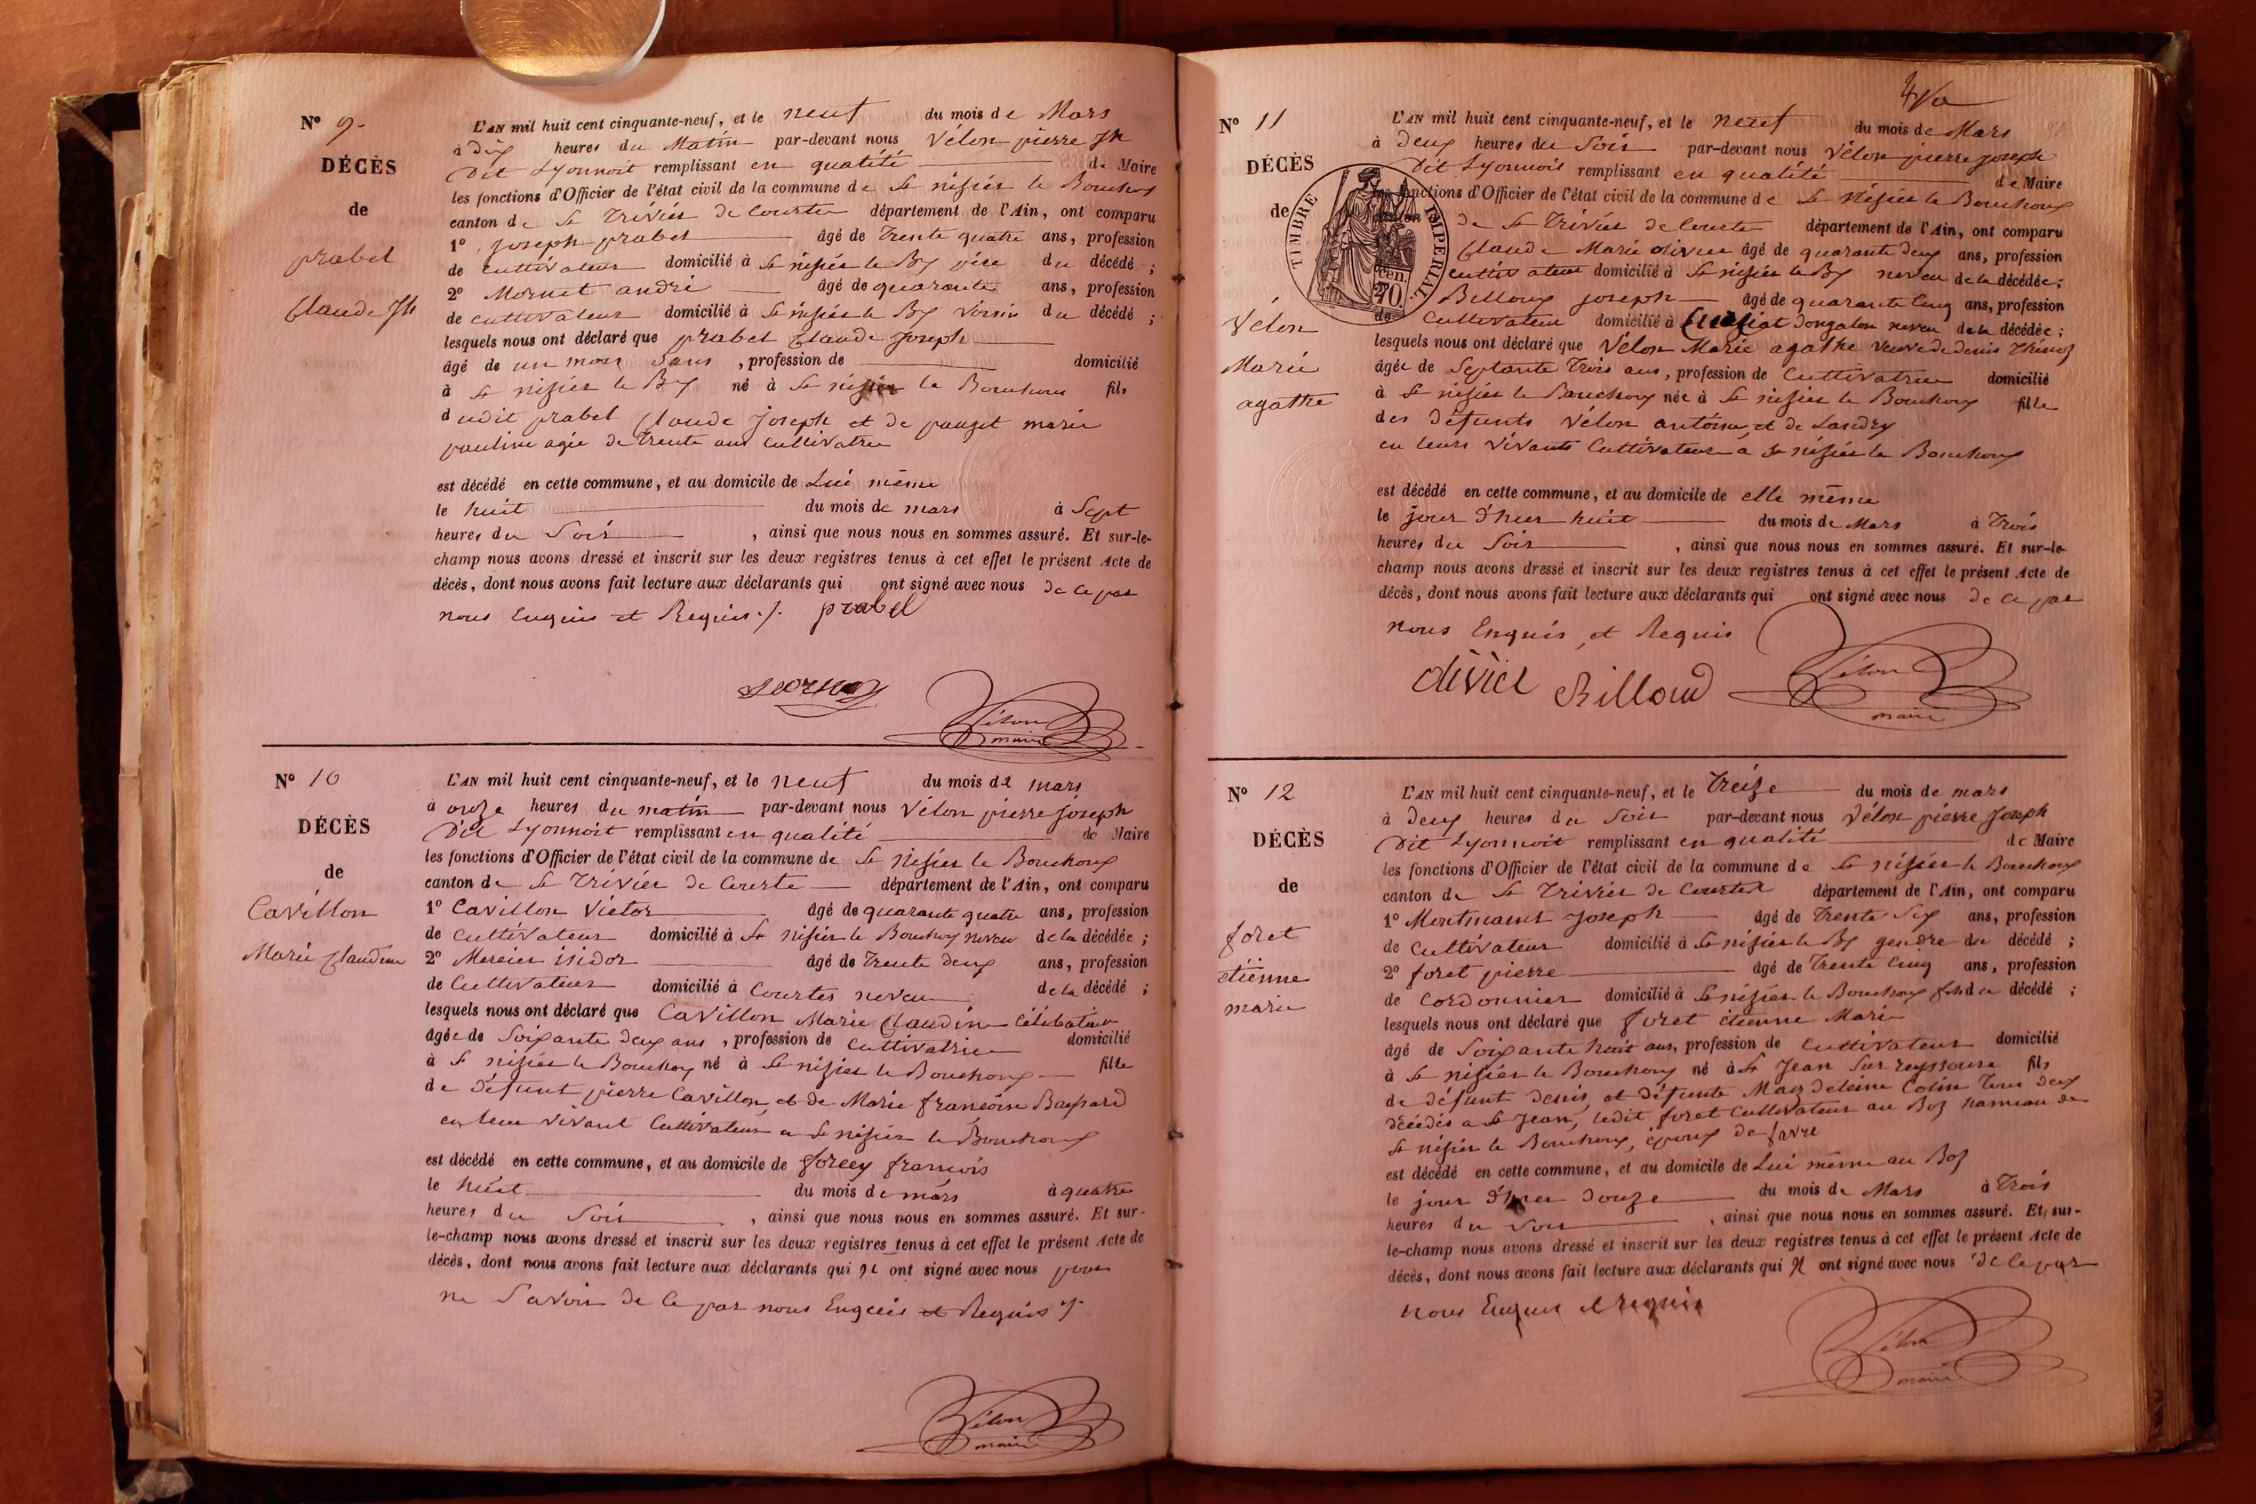 N° 9.
DÉCÈS
de
prabel
Claude Jh
L'AN mil huit cent cinquante-neuf, et le neuf du mois de Mars
à dix heures du Matin par-devant nous Vélon pierre Jh
Dit Lyonnoit remplissant en qualité de Maire
les fonctions d'Officier de l'état civil de la commune de St nisier le Bouchoux
canton de St Trivier de Courtes département de l'Ain, ont comparu
1° Joseph prabel âgé de Trente quatre ans, profession
de cultivateur domicilié à St nisier le Bx père du décédé ;
2° Mornet andré âgé de quarante ans, profession
de cultivateur domicilié à St nisier le Bx voisin du décédé ;
lesquels nous ont déclaré que prabel Claude Joseph
âgé de un mois Sans , profession de domicilié
à St nisier le Bx né à St nisier le Bouchoux fils
dudit prabel Claude Joseph et de pauget marie
pauline agée de Trente ans cultivatrice
est décédé en cette commune, et au domicile de Lui même
le huit du mois de mars à Sept
heures du Soir , ainsi que nous nous en sommes assuré. Et sur-le-
champ nous avons dressé et inscrit sur les deux registres tenus à cet effet le présent Acte de
décès, dont nous avons fait lecture aux déclarants qui ont signé avec nous de ce par
nous Enquis et Requis ./. prabel
Vélon
maire
N° 10
DÉCÈS
de
Cavillon
Marie Claudine
L'AN mil huit cent cinquante-neuf, et le neuf du mois de mars
à onze heures du matin par-devant nous Vélon pierre joseph
Dit Lyonnoit remplissant en qualité de Maire
les fonctions d'Officier de l'état civil de la commune de St Nisier le Bouchoux
canton de St Trivier de Courte département de l'Ain, ont comparu
1° Cavillon Victor âgé de quarante quatre ans, profession
de cultivateur domicilié à St nisier le Bouchoux neveu de la décédée ;
2° Mercier isidor âgé de Trente deux ans, profession
de Cultivateur domicilié à Courtes neveu de la décédé ;
lesquels nous ont déclaré que Cavillon Marie Claudine Célibataire
âgée de Soixante deux ans , profession de Cultivatrice domicilié
à St nisier le Bouchoux né à St nisier le Bouchoux fille
de défunt pierre Cavillon et de Marie françoise Bassard
en leur vivant Cultivateur a St nisier le Bouchoux
est décédé en cette commune, et au domicile de forey francois
le huit du mois de mars à quatre
heures du Soir , ainsi que nous nous en sommes assuré. Et sur-
le-champ nous avons dressé et inscrit sur les deux registres tenus à cet effet le présent Acte de
décès, dont nous avons fait lecture aux déclarants qui ne ont signé avec nous pour
ne Savoir de Ce par nous Enquis et Requis ./.
Vélon
maire
N° 11
DÉCÈS
de
Vélon
Marie
agathe
TIMBRE IMPERIAL.
CEN.
70
L'AN mil huit cent cinquante-neuf, et le neuf du mois de Mars
à deux heures du Soir par-devant nous Vélon pierre joseph
Dit Lyonnois remplissant en qualité de Maire
les fonctions d'Officier de l'état civil de la commune de St Nisier le Bouchoux
canton de St Trivier de Courte département de l'Ain, ont comparu
Claude Marie olivier âgé de quarante deux ans, profession
cultivateur domicilié à St nisier le Bx neveu de la décédée ;
Billoux joseph âgé de quarante Cinq ans, profession
de Cultivateur domicilié à Curciat dongalon neveu de la décédée ;
lesquels nous ont déclaré que Vélon Marie agathe veuve de denis Thénoz
âgée de Septante Trois ans , profession de Cultivatrice domicilié
à St nisier le Bouchoux née à St nisier le Bouchoux fille
des défunts Vélon antoine, et de Landry
en leurs Vivants Cultivateurs a St nisier le Bouchoux
est décédé en cette commune, et au domicile de elle même
le jour d'hier huit du mois de Mars à Trois
heures du Soir , ainsi que nous nous en sommes assuré. Et sur-le-
champ nous avons dressé et inscrit sur les deux registres tenus à cet effet le présent Acte de
décès, dont nous avons fait lecture aux déclarants qui ont signé avec nous de ce par
nous Enquis, et Requis
Billoud
Vélon
maire
N° 12
DÉCÈS
de
foret
etiénne
marie
L'AN mil huit cent cinquante-neuf, et le Treize du mois de mars
à deux heures du Soir par-devant nous Vélon pierre Joseph
Dit Lyonnoit remplissant en qualité de Maire
les fonctions d'Officier de l'état civil de la commune de St nisier le Bouchoux
canton de St Trivier de Courtes département de l'Ain, ont comparu
1° Montmaint Joseph âgé de Trente Six ans, profession
de Cultivateur domicilié à St nisier le Bx gendre du décédé ;
2° foret pierre âgé de Trente Cinq ans, profession
de Cordonnier domicilié à St nisier le Bouchoux fils du décédé ;
lesquels nous ont déclaré que foret étienne Marie
âgé de Soixante huit ans, profession de cultivateur domicilié
à St nisier le Bouchoux né à St Jean Sur reyssouze fils
de défunt denis, et défunte Magdeleine Colin Tous deux
décédés a St Jean, ledit foret Cultivateur au Boz hameau de
St nisier le Bouchoux, époux de favre
est décédé en cette commune, et au domicile de Lui même au Boz
le jour d'hier douze du mois de Mars à Trois
heures du Soir , ainsi que nous nous en sommes assuré. Et, sur-
le-champ nous avons dressé et inscrit sur les deux registres tenus à cet effet le présent Acte de
décès, dont nous avons fait lecture aux déclarants qui N ont signé avec nous de ce par
nous Enquis et requis
Vélon
maire